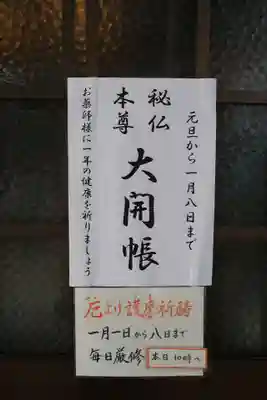 元旦から一月八日まで
秘仏
本尊
大開帳
お薬師様に一年の健康を祈りましょう
厄よけ護摩祈祷
一月一日から八日まで
毎日厳修
本日10時〜